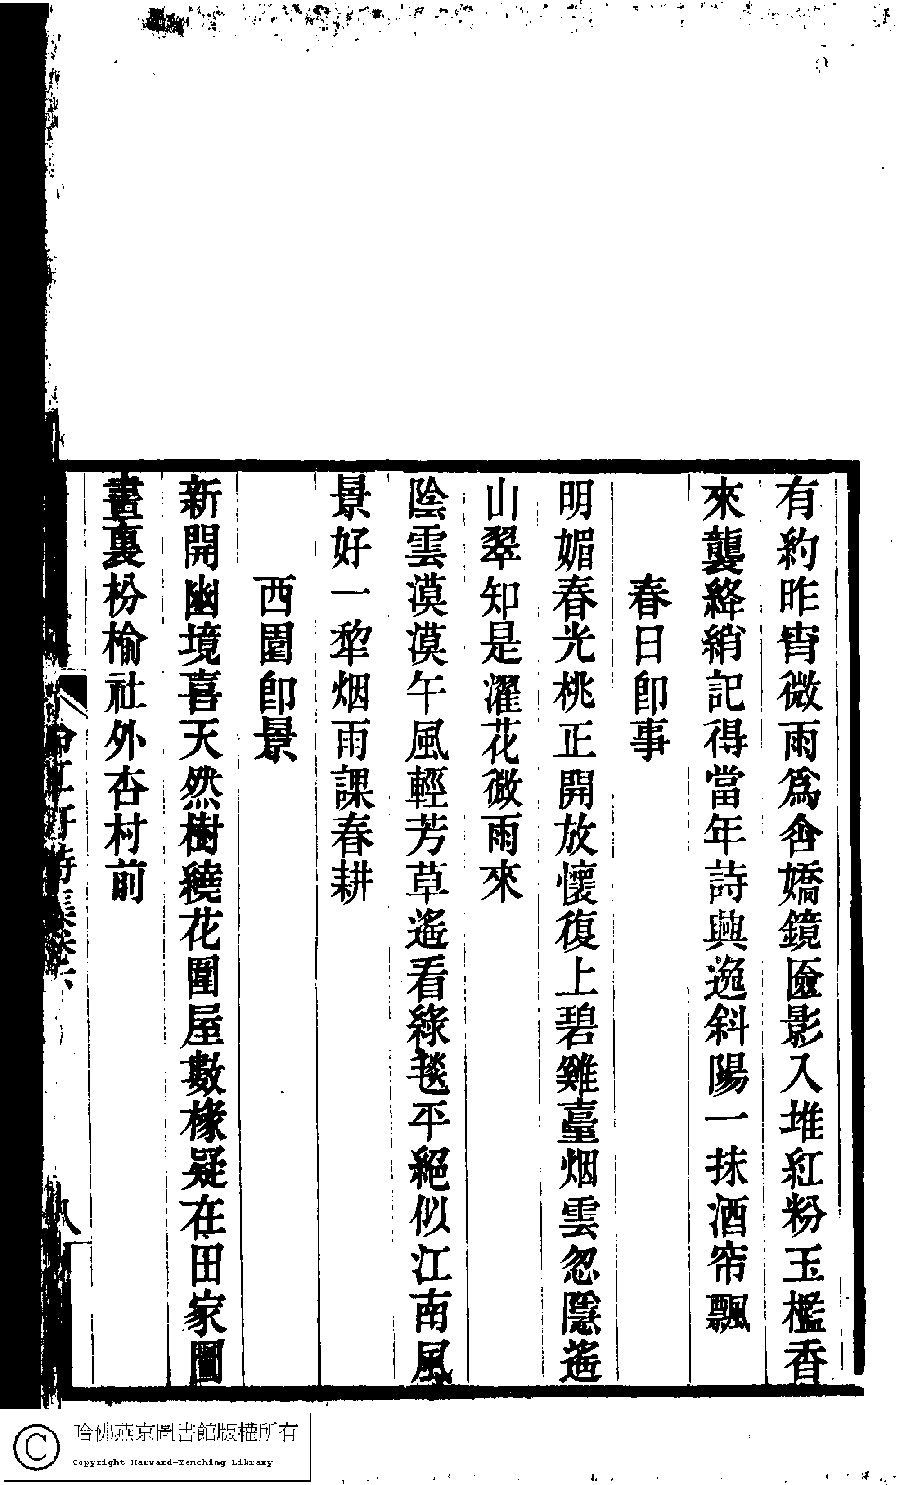 有約昨宵微雨爲含嬌鏡匳影入堆紅粉玉檻香
來襲絳綃記得當年詩興逸斜陽一抹酒帘飄
春日卽事
明媚春光桃正開放懷復上碧雞臺烟雲忽隱遙
山翠知是濯花微雨來
陰雲漠漠午風輕芳草遙看綠毯平絕似江南風
景好一犂烟雨課春耕
西園卽景
新開幽境喜天然樹繞花圍屋數椽疑在田家圖
畫裏枌榆社外杏村前
詩集卷六
八
哈佛燕京圖書館版權所有
Copyright Harvard-Yenching Library